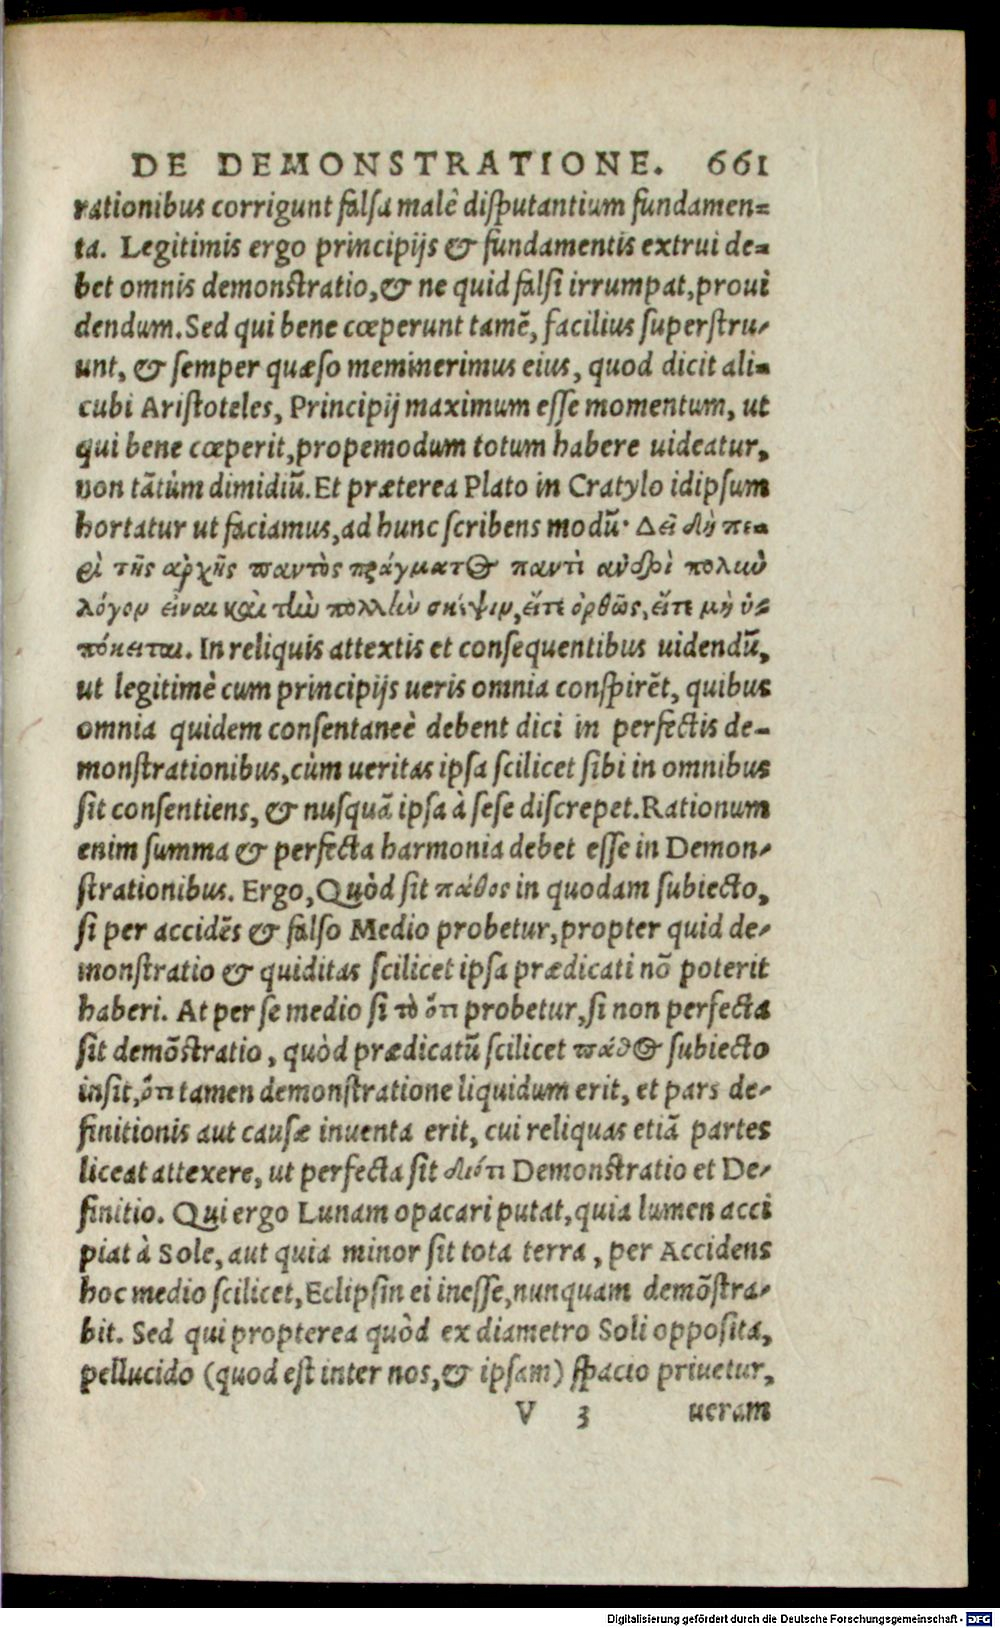 DE DEMONSTRATIONE. 661
rationibus corrigunt falsa malè disputantium fundamen=
ta. Legitimis ergo principijs & fundamentis extrui de=
bet omnis demonstratio, & ne quid falsi irrumpat, proui
dendum. Sed qui bene cœperunt tamẽ, facilius superstru-
unt, & semper quæso meminerimus eius, quod dicit ali=
cubi Aristoteles, Principij maximum esse momentum, ut
qui bene cœperit, propemodum totum habere uideatur,
non tãtùm dimidiũ. Et præterea Plato in Cratylo idipsum
hortatur ut faciamus, ad hunc scribens modũ· Δεῖ δὴ πε=
ρὶ τῆς ἀρχῆς παντὸς πράγματος παντὶ ἀνδρὶ πολὺν
λόγον εἶναι καὶ τὴν πολλὴν σκέψιν, εἴτε ὀρθῶς, εἴτε μὴ ὑ=
πόκειται. In reliquis attextis et consequentibus uidendũ,
ut legitimè cum principijs ueris omnia conspirẽt, quibus
omnia quidem consentaneè debent dici in perfectis de-
monstrationibus, cùm ueritas ipsa scilicet sibi in omnibus
sit consentiens, & nusquã ipsa à sese discrepet. Rationum
enim summa & perfecta harmonia debet esse in Demon-
strationibus. Ergo, Quòd sit πάθος in quodam subiecto,
si per accidẽs & falso Medio probetur, propter quid de-
monstratio & quiditas scilicet ipsa prædicati nõ poterit
haberi. At per se medio si τὸ ὅτι probetur, si non perfecta
sit demõstratio, quòd prædicatũ scilicet πάθος subiecto
insit, ὅτι tamen demonstratione liquidum erit, et pars de-
finitionis aut causæ inuenta erit, cui reliquas etiã partes
liceat attexere, ut perfecta sit διότι Demonstratio et De-
finitio. Qui ergo Lunam opacari putat, quia lumen acci
piat à Sole, aut quia minor sit tota terra, per Accidens
hoc medio scilicet, Eclipsin ei inesse, nunquam demõstra-
bit. Sed qui propterea quòd ex diametro Soli opposita,
pellucido (quod est inter nos, & ipsam) spacio priuetur,
V 3 ueram
Digitalisierung gefördert durch die Deutsche Forschungsgemeinschaft - DFG